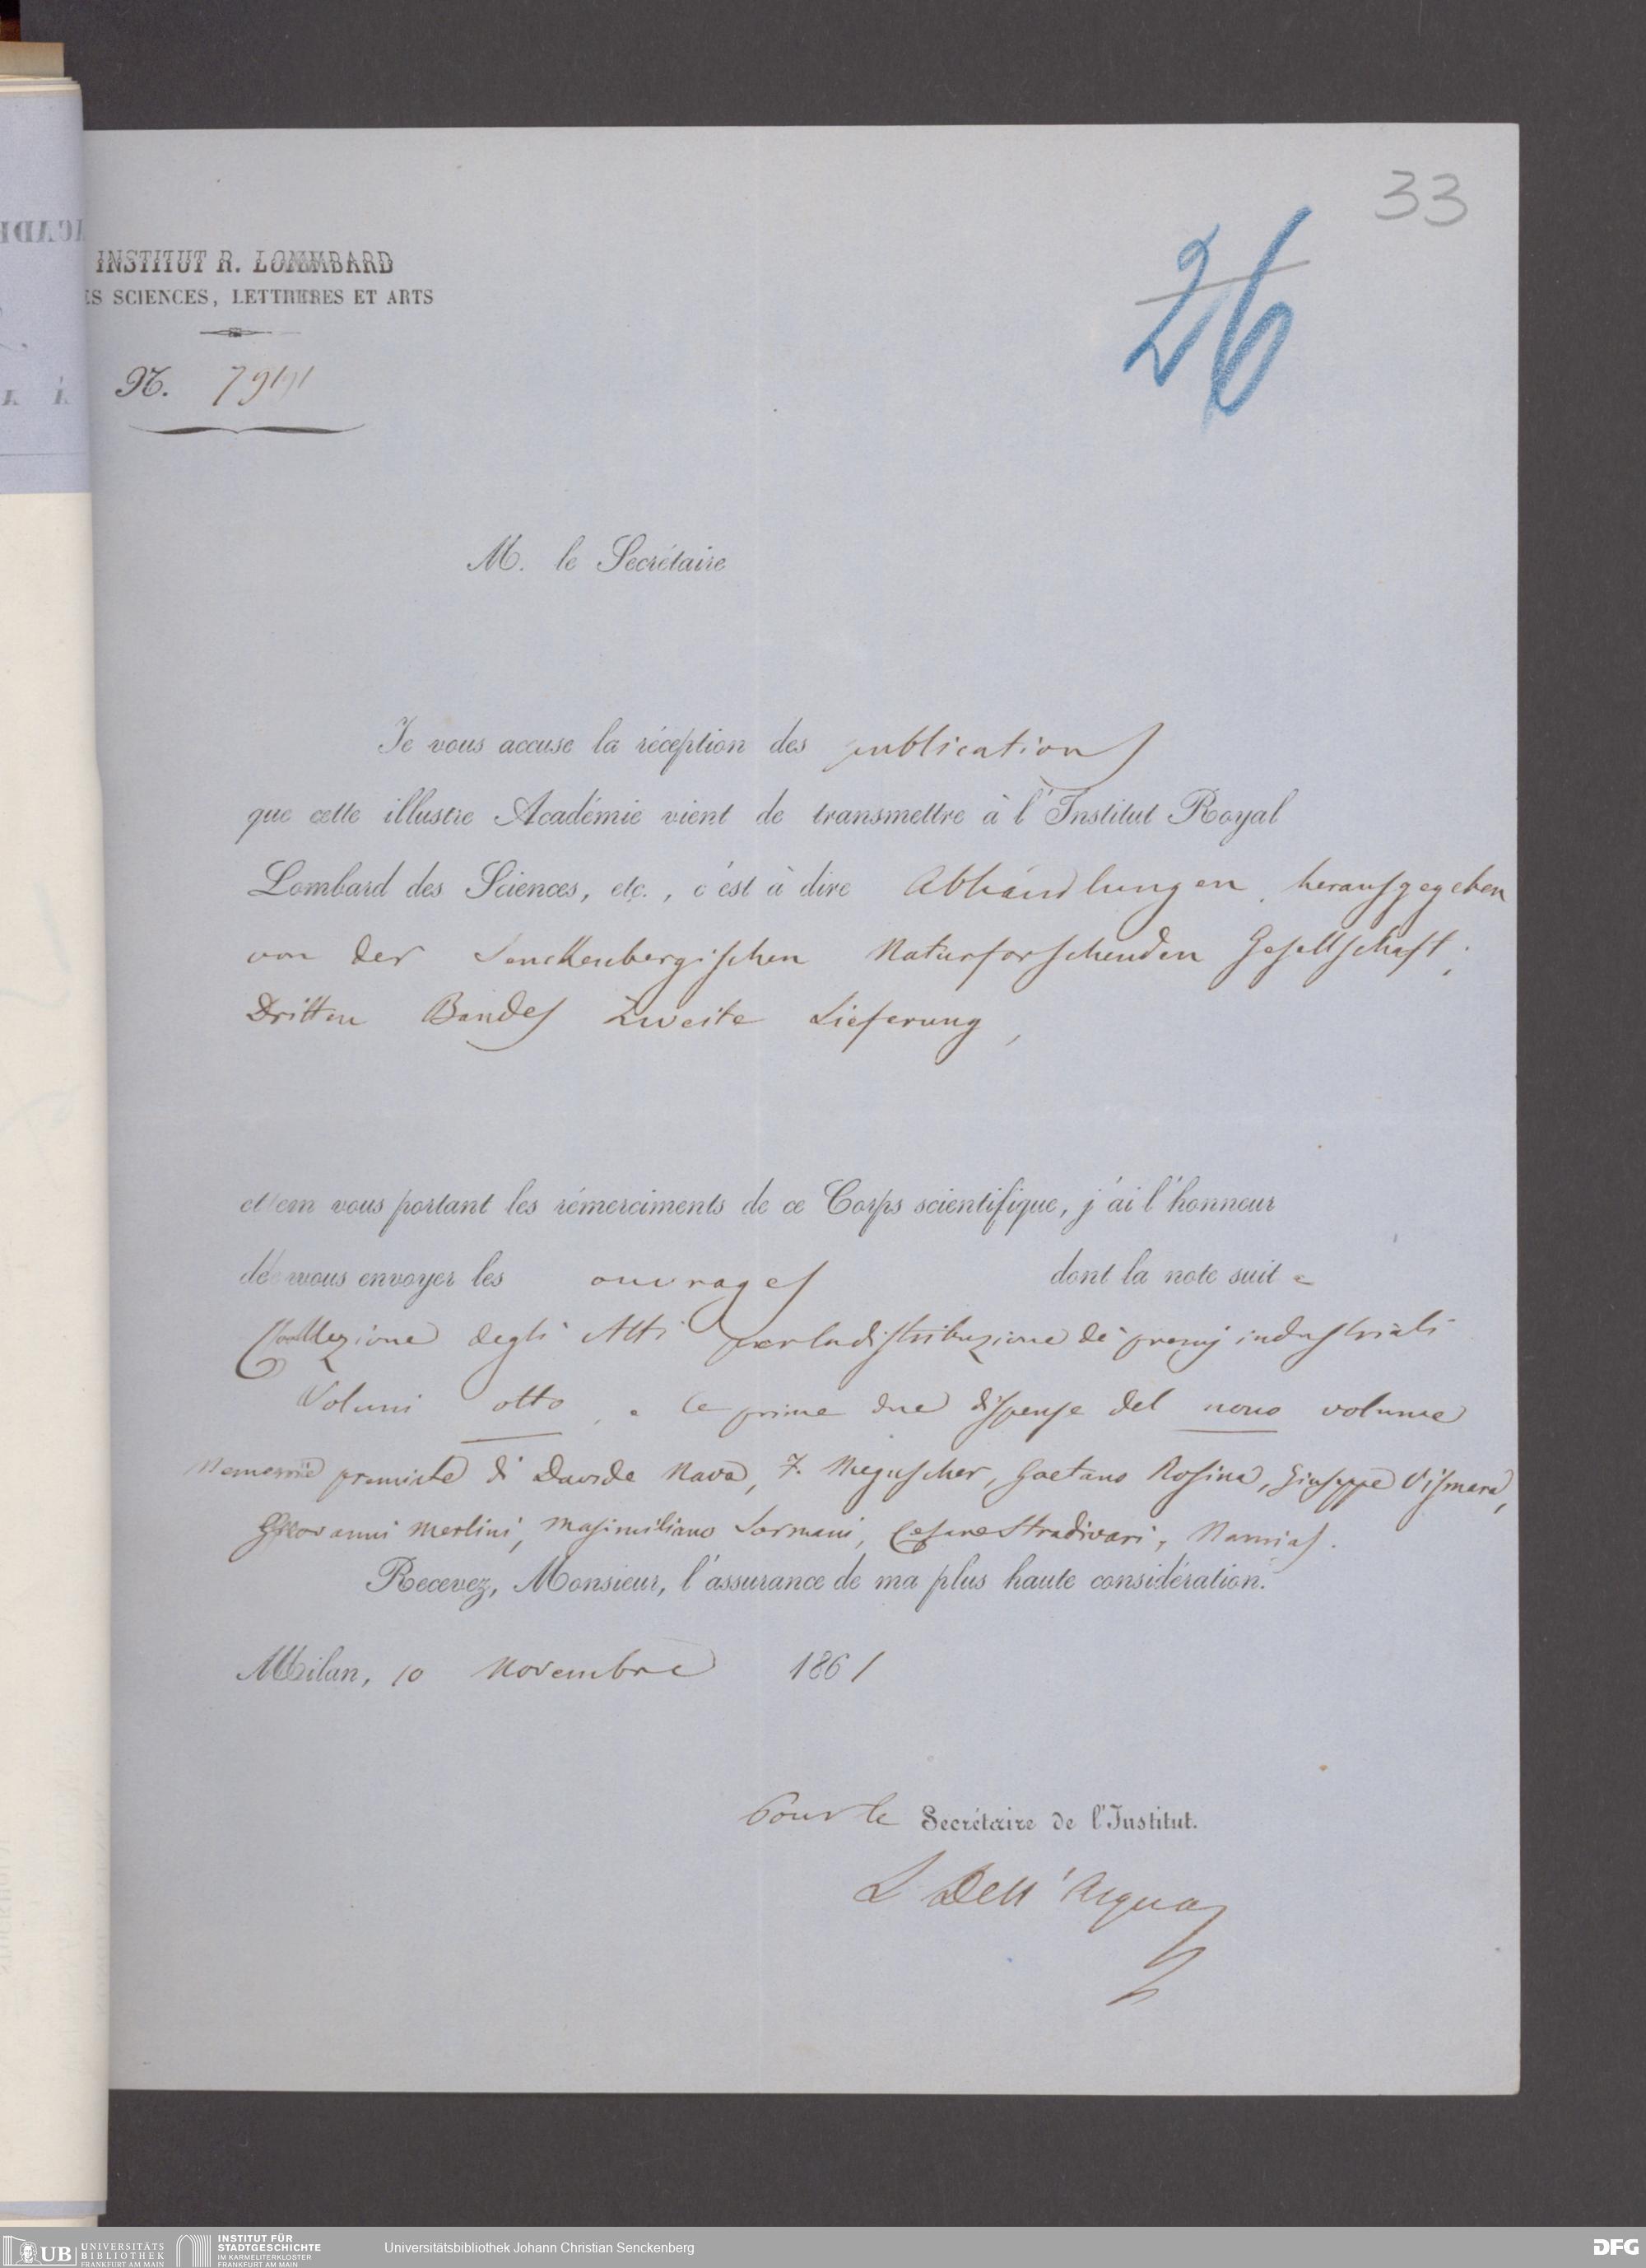 33
26
INSTITUT R. LOMBARD
ES SCIENCES, LETTRES ET ARTS
N. 791
M. le Secrétaire
Je vous accuse la réception des publications
que cette illustre Académie vient de transmettre à l'Institut Royal
Lombard des Sciences, etc., c'est à dire Abhandlungen, herausgegeben
von der Senckenbergischen Naturforschenden Gesellschaft;
Dritten Bandes Zweite Lieferung,
et en vous portant les rémerciments de ce Corps scientifique, j'ai l'honneur
de vous envoyer les ouvrages dont la note suit =
Collezione degli Atti per la distribuzione dè premj industriali
Volumi otto, e le prime due dispense del nono volume
Memorie premiate di Davide Nava, F. Meguscher, Gaetano Rosina, Giuseppe Vismara,
Giovanni Merlini, Masimiliano Sormani, Cesare Stradivari, Namias.
Recevez, Monsieur, l'assurance de ma plus haute considération.
Milan, 10 Novembre 1861
Pour le Secrétaire de l'Institut.
L Dell'Acqua
UB UNIVERSITÄTS
BIBLIOTHEK
FRANKFURT AM MAIN
INSTITUT FÜR
STADTGESCHICHTE
IM KARMELITERKLOSTER
FRANKFURT AM MAIN
Universitätsbibliothek Johann Christian Senckenberg
DFG